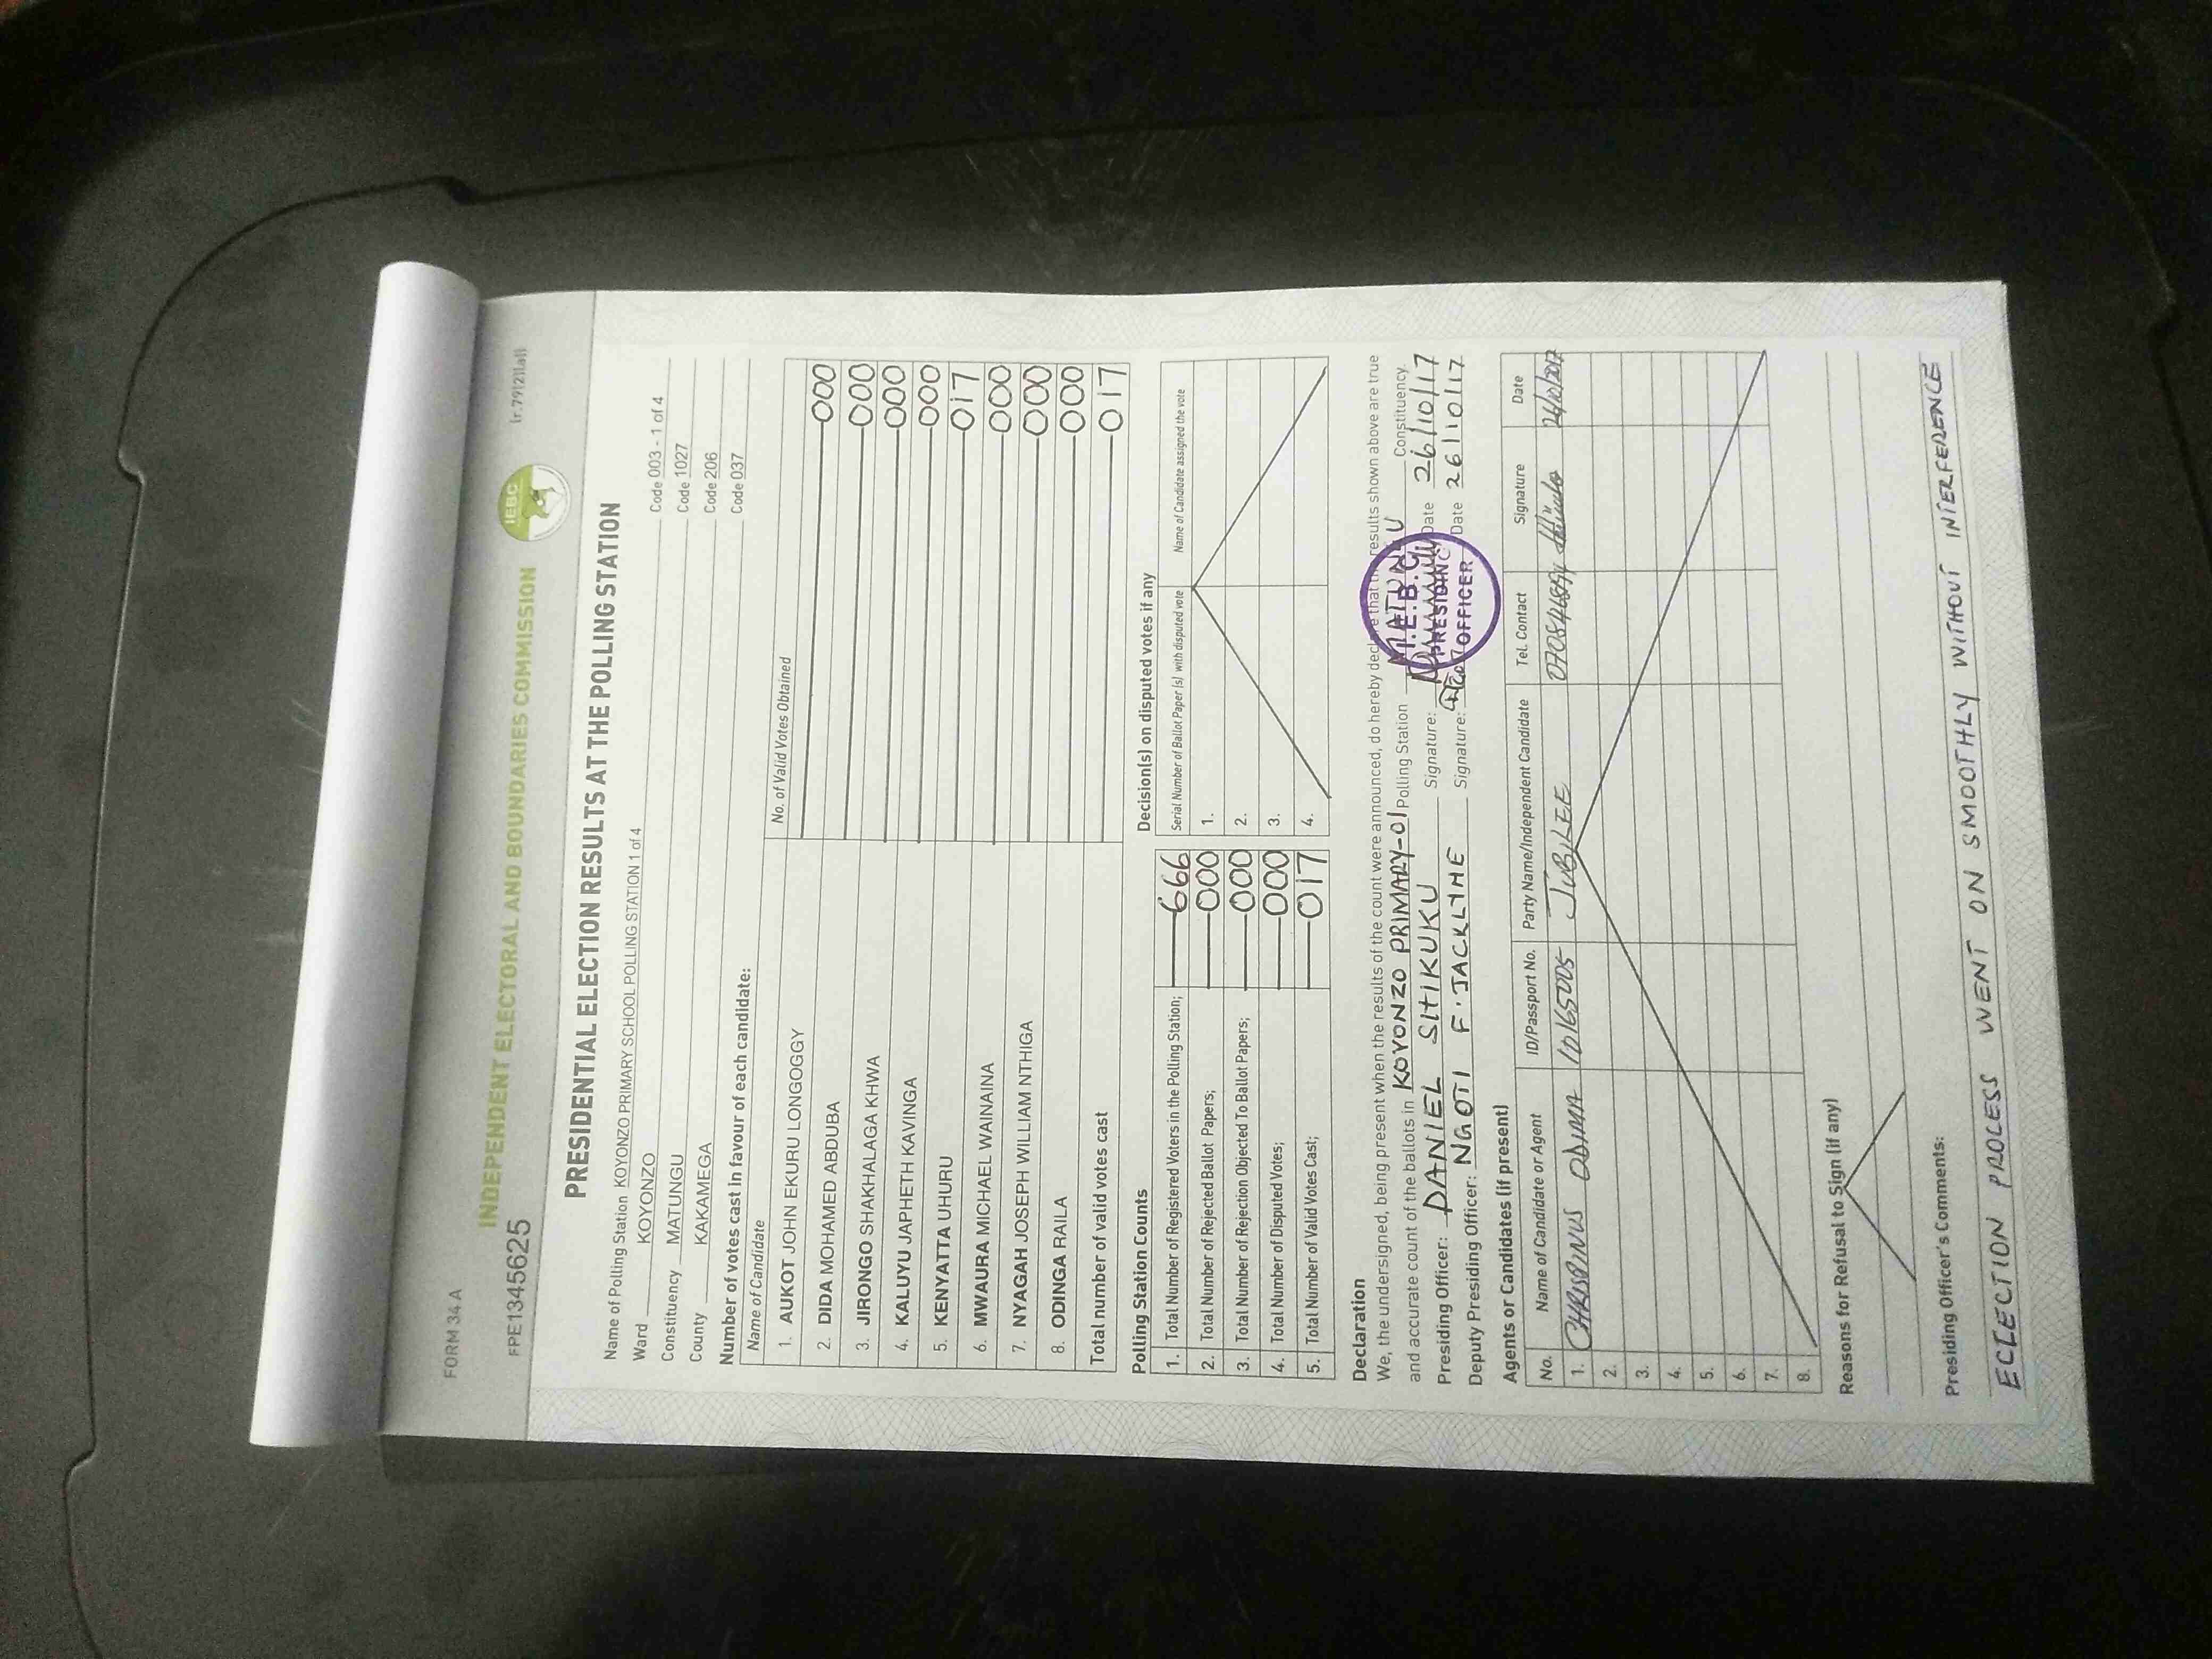 FORM 34 A
(r.79(2)(a))
INDEPENDENT ELECTORAL AND BOUNDARIES COMMISSION
IEBC
FPE1345625
PRESIDENTIAL ELECTION RESULTS AT THE POLLING STATION
Name of Polling Station KOYONZO PRIMARY SCHOOL POLLING STATION 1 of 4 Code 003 - 1 of 4
Ward KOYONZO Code 1027
Constituency MATUNGU Code 206
County KAKAMEGA Code 037
Number of votes cast in favour of each candidate:
Name of Candidate No. of Valid Votes Obtained
1. AUKOT JOHN EKURU LONGOGGY 000
2. DIDA MOHAMED ABDUBA 000
3. JIRONGO SHAKHALAGA KHWA 000
4. KALUYU JAPHETH KAVINGA 000
5. KENYATTA UHURU 017
6. MWAURA MICHAEL WAINAINA 000
7. NYAGAH JOSEPH WILLIAM NTHIGA 000
8. ODINGA RAILA 000
Total number of valid votes cast 017
Polling Station Counts
1. Total Number of Registered Voters in the Polling Station; 666
2. Total Number of Rejected Ballot Papers; 000
3. Total Number of Rejection Objected To Ballot Papers; 000
4. Total Number of Disputed Votes; 000
5. Total Number of Valid Votes Cast; 017
Decision(s) on disputed votes if any
Serial Number of Ballot Paper (s) with disputed vote Name of Candidate assigned the vote
1.
2.
3.
4.
Declaration
We, the undersigned, being present when the results of the count were announced, do hereby declare that the results shown above are true
and accurate count of the ballots in KOYONZO PRIMARY-01 Polling Station MATUNGU Constituency
Presiding Officer: DANIEL SITIKUKU Signature: Date 26/10/17
Deputy Presiding Officer: NGOTI F. JACKLYHE Signature: Date 26/10/17
I.E.B.C.
PRESIDING
OFFICER
Agents or Candidates (if present)
No. Name of Candidate or Agent ID/Passport No. Party Name/Independent Candidate Tel. Contact Signature Date
1. CHRISENUS ODIMA JUBILEE 26/10/2017
2.
3.
4.
5.
6.
7.
8.
Reasons for Refusal to Sign (if any)
Presiding Officer's Comments:
ECLECTION PROCESS WENT ON SMOOTHLY WITHOUT INTERFERENCE